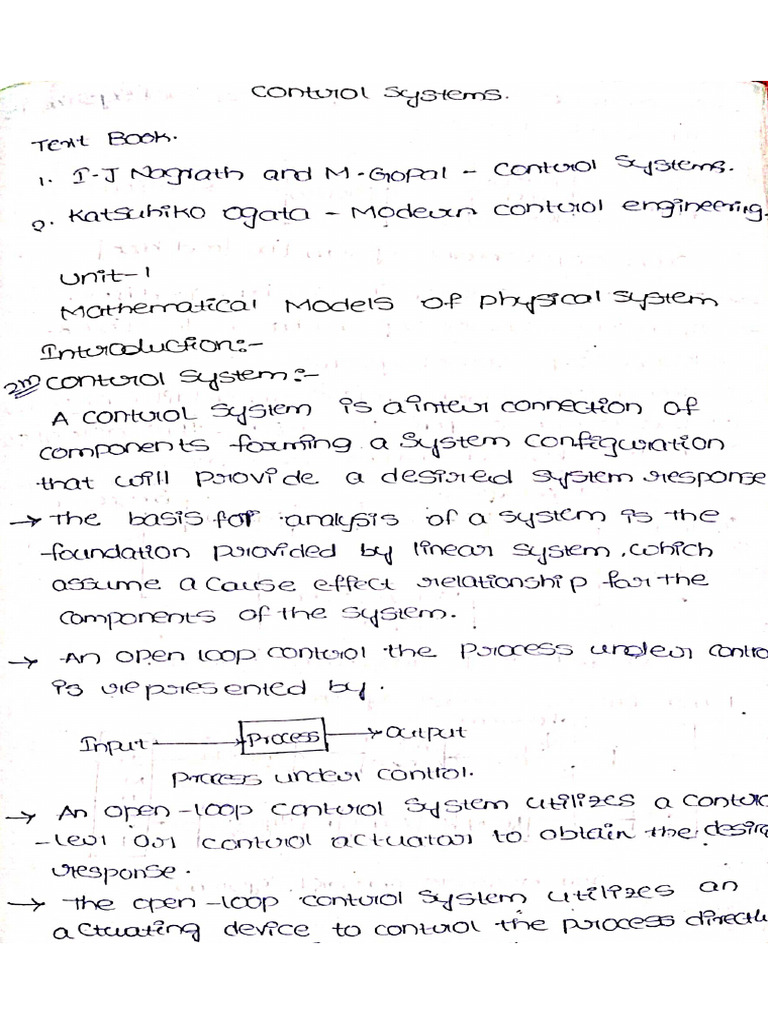 Control Systems.
Text Book.
1. I-J Nagrath and M-Gopal - Control Systems.
2. Katsuhiko Ogata - Modern control engineering.
Unit-1
Mathematical Models of physical system
Introduction:-
2m control system:-
A control system is a inter connection of
components forming a system configuration
that will provide a desired system response
→ the basis for analysis of a system is the
foundation provided by linear system, which
assume a cause effect relationship for the
components of the system.
→ An open loop control the process under contro
is represented by.
Input Process output
process under control.
→ An open-loop control system utilizes a contro
-ler or control actuator to obtain the desire
response.
→ The open-loop control system utilizes an
actuating device to control the process directly